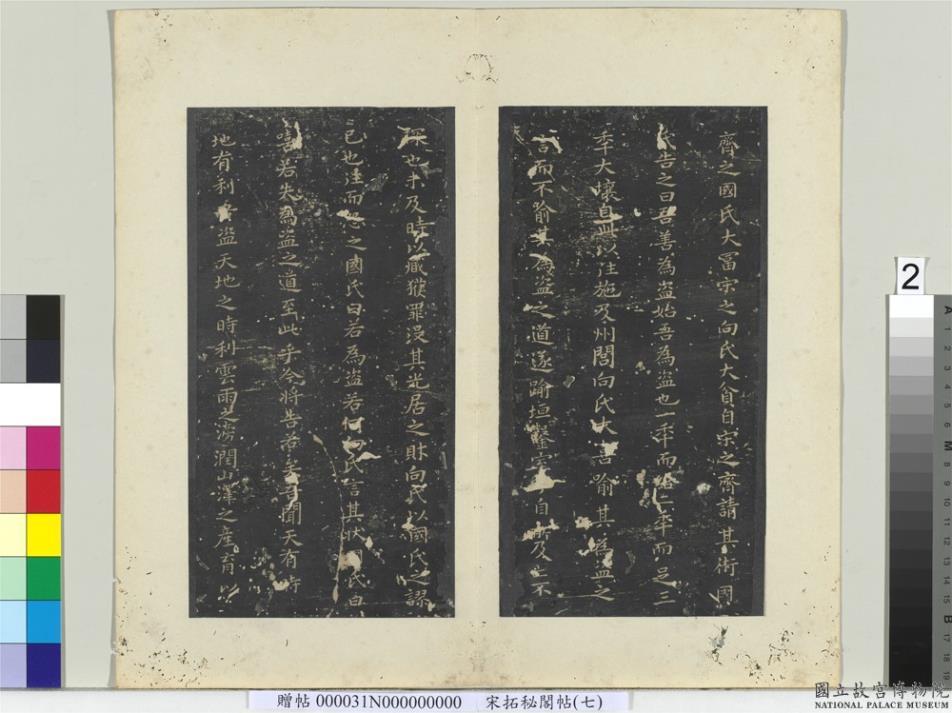 齊之國氏大冨宋之向氏大貧自宋之齊請其術國
氏告之曰吾善為盜始吾為盜也一年而給二年而足三
年大壤自此以往施及州閭向氏大喜喻其為盜之
言而不喻其為盜之道遂踰垣鑿室手目所及亡不
探也未及時以贓獲罪沒其先居之財向氏以國氏之謬
己也往而怨之國氏曰若為盜若何向氏言其狀國氏曰
嘻若失為盜之道至此乎今將告若矣吾聞天有時
地有利吾盜天地之時利雲雨之滂潤山澤之產育以
2
A
1
2
3
4
5
M
8
9
10
11
12
13
14
15
B
17
18
19
國立故宮博物院
NATIONAL PALACE MUSEUM
贈帖 000031N000000000 宋拓秘閣帖(七)